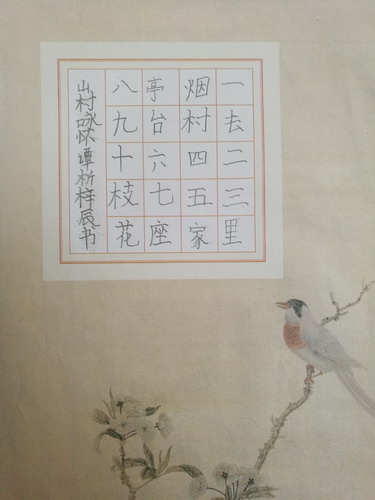 一去二三里
烟村四五家
亭台六七座
八九十枝花
山村咏怀谭析梓辰书